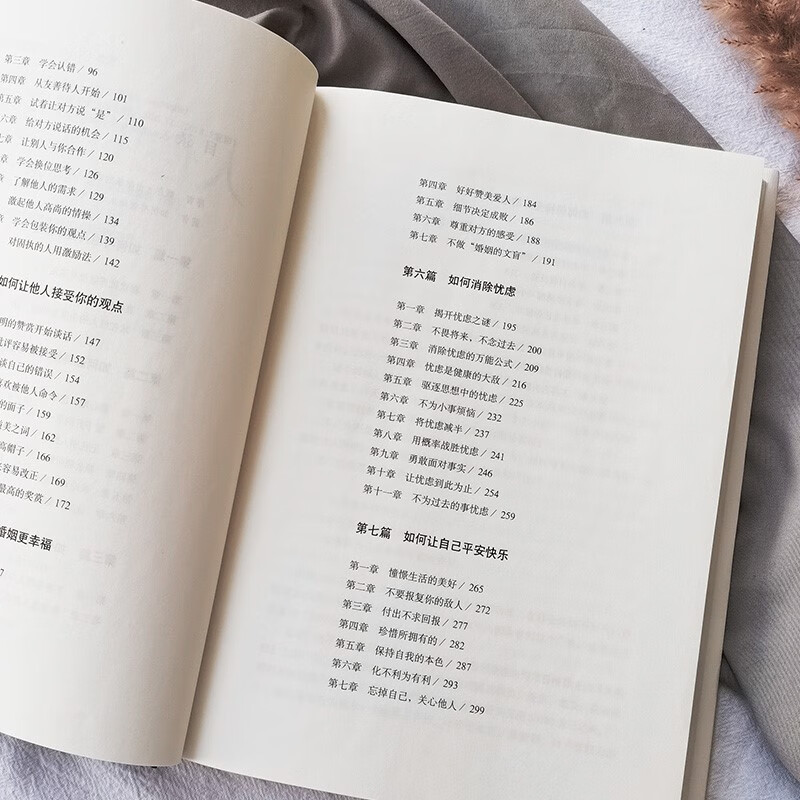 第三章 学会认错 / 96
第四章 从友善待人开始 / 101
第五章 试着让对方说“是” / 110
六章 给对方说话的机会 / 115
七章 让别人与你合作 / 120
章 学会换位思考 / 126
了解他人的需求 / 129
激起他人高尚的情操 / 134
学会包装你的观点 / 139
对固执的人用激励法 / 142
如何让他人接受你的观点
明的赞赏开始谈话 / 147
批评容易被接受 / 152
谈自己的错误 / 154
喜欢被他人命令 / 157
的面子 / 159
美之词 / 162
高帽子 / 166
容易改正 / 169
最高的奖赏 / 172
婚姻更幸福
7
第四章 好好赞美爱人 / 184
第五章 细节决定成败 / 186
第六章 尊重对方的感受 / 188
第七章 不做“婚姻的文盲” / 191
第六篇 如何消除忧虑
第一章 揭开忧虑之谜 / 195
第二章 不畏将来，不念过去 / 200
第三章 消除忧虑的万能公式 / 209
第四章 忧虑是健康的大敌 / 216
第五章 驱逐思想中的忧虑 / 225
第六章 不为小事烦恼 / 232
第七章 将忧虑减半 / 237
第八章 用概率战胜忧虑 / 241
第九章 勇敢面对事实 / 246
第十章 让忧虑到此为止 / 254
第十一章 不为过去的事忧虑 / 259
第七篇 如何让自己平安快乐
第一章 憧憬生活的美好 / 265
第二章 不要报复你的敌人 / 272
第三章 付出不求回报 / 277
第四章 珍惜所拥有的 / 282
第五章 保持自我的本色 / 287
第六章 化不利为有利 / 293
第七章 忘掉自己，关心他人 / 299